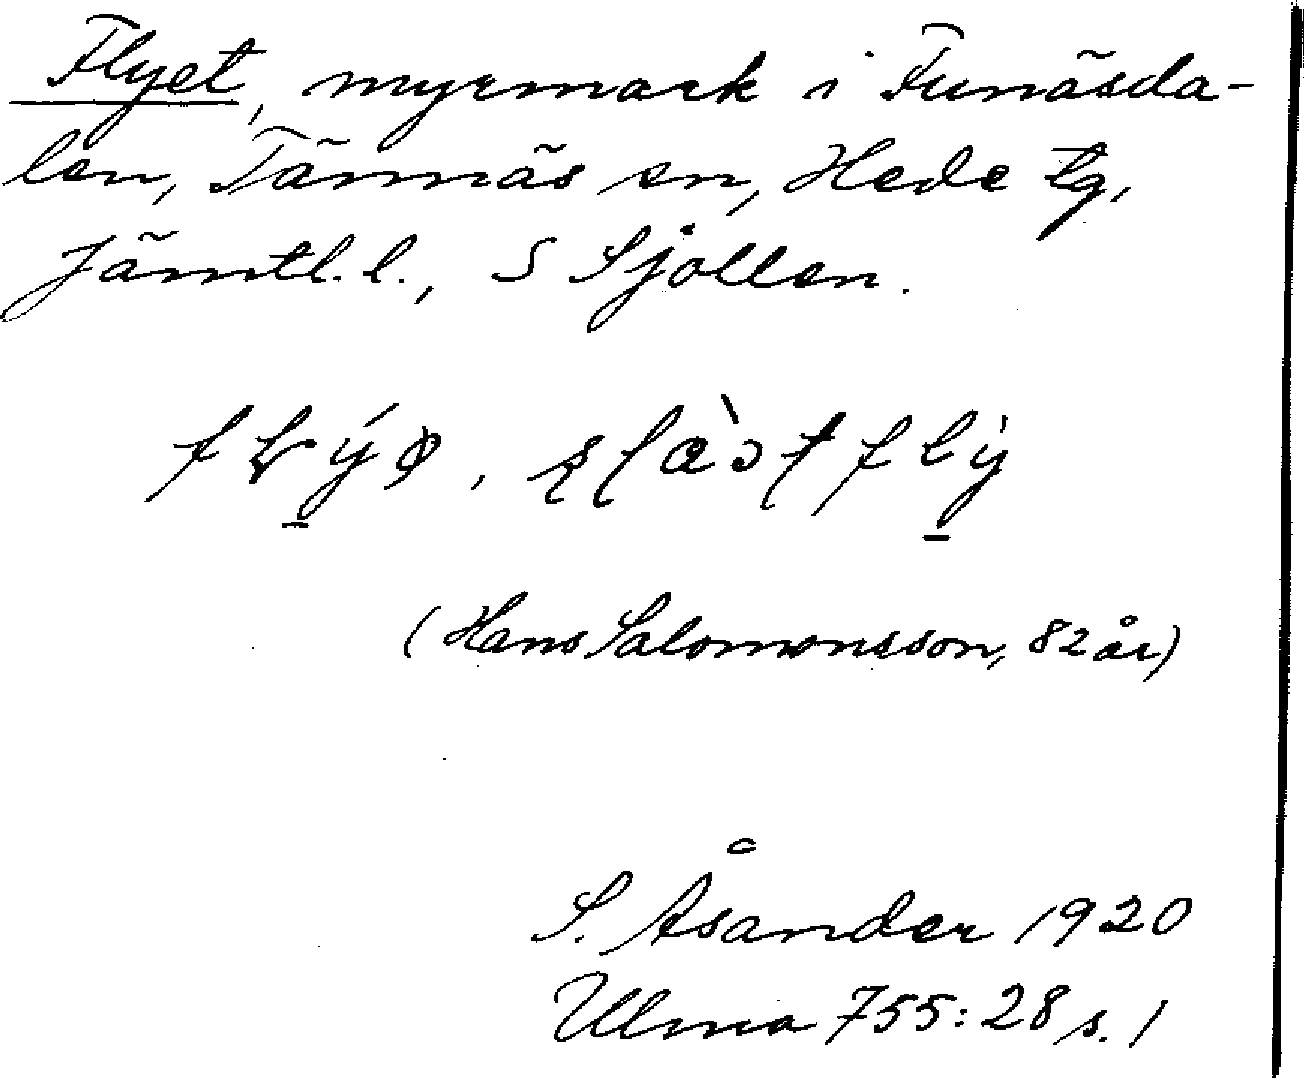 Flyet, myrmark i Funäsda-
len, Tännäs sn, Hede tg,
Jämtl. l., S Sjöllen.
(Hans Salomonsson, 82 år)
S. Åsander 1920
Ulma 755:28 s. 1